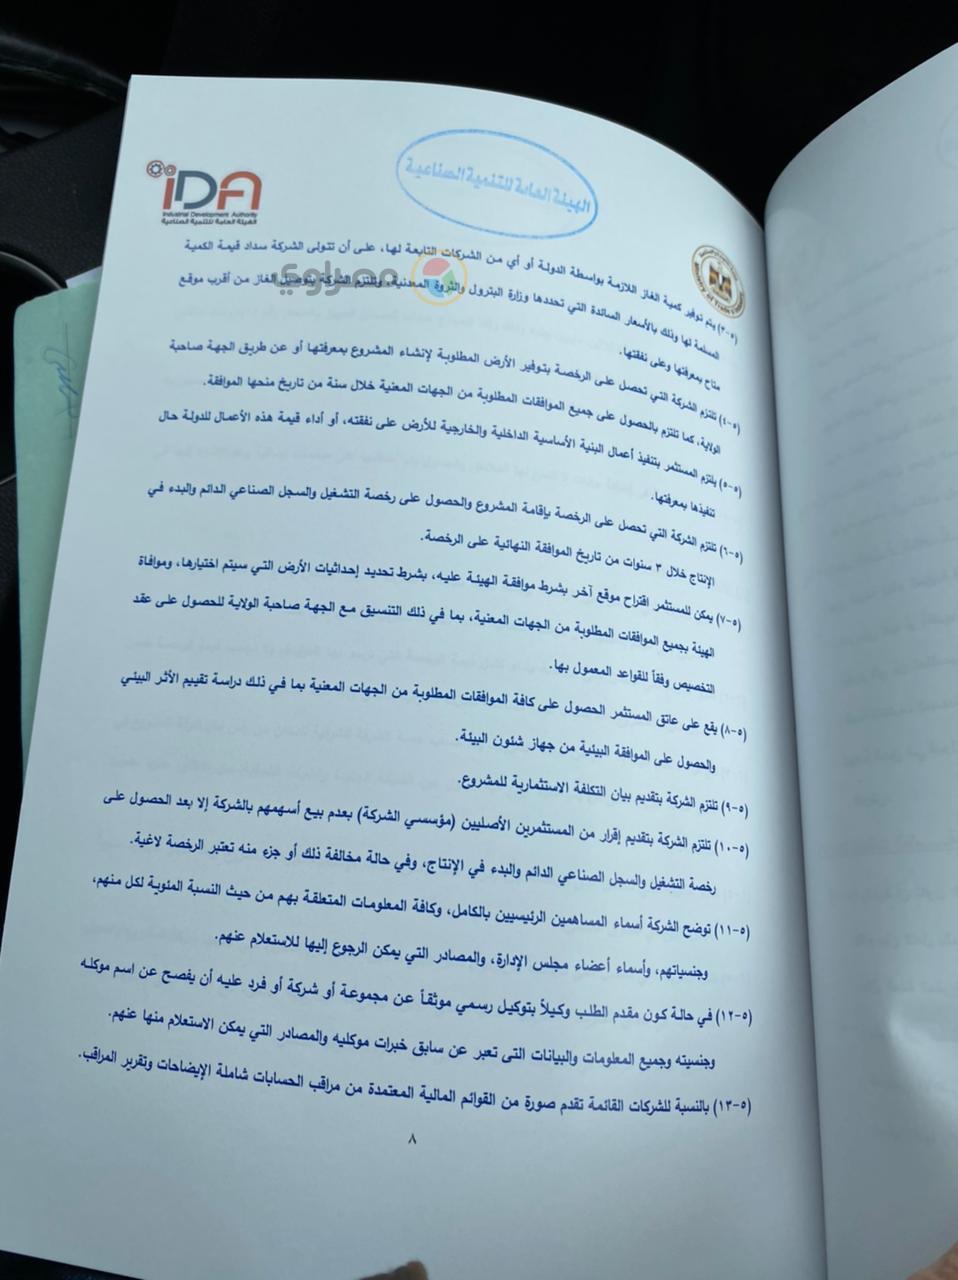 الهيئة العامة للتنمية الصناعية
iDA
Industrial Development Authority
الهيئة العامة للتنمية الصناعية
مصراوي
(٥-٣) يتم توفير كمية الغاز اللازمة بواسطة الدولة أو أي من الشركات التابعة لها، على أن تتولى الشركة سداد قيمة الكمية
المسلمة لها وذلك بالأسعار السائدة التي تحددها وزارة البترول والثروة المعدنية، وتلتزم الشركة بتوصيل الغاز من أقرب موقع
متاح بمعرفتها وعلى نفقتها.
(٥-٤) تلتزم الشركة التي تحصل على الرخصة بتوفير الأرض المطلوبة لإنشاء المشروع بمعرفتها أو عن طريق الجهة صاحبة
الولاية، كما تلتزم بالحصول على جميع الموافقات المطلوبة من الجهات المعنية خلال سنة من تاريخ منحها الموافقة.
(٥-٥) يلتزم المستثمر بتنفيذ أعمال البنية الأساسية الداخلية والخارجية للأرض على نفقته، أو أداء قيمة هذه الأعمال للدولة حال
تنفيذها بمعرفتها.
(٥-٦) تلتزم الشركة التي تحصل على الرخصة بإقامة المشروع والحصول على رخصة التشغيل والسجل الصناعي الدائم والبدء في
الإنتاج خلال ٣ سنوات من تاريخ الموافقة النهائية على الرخصة.
(٥-٧) يمكن للمستثمر اقتراح موقع آخر بشرط موافقة الهيئة عليه، بشرط تحديد إحداثيات الأرض التي سيتم اختيارها، وموافاة
الهيئة بجميع الموافقات المطلوبة من الجهات المعنية، بما في ذلك التنسيق مع الجهة صاحبة الولاية للحصول على عقد
التخصيص وفقاً للقواعد المعمول بها.
(٥-٨) يقع على عاتق المستثمر الحصول على كافة الموافقات المطلوبة من الجهات المعنية بما في ذلك دراسة تقييم الأثر البيئي
والحصول على الموافقة البيئية من جهاز شئون البيئة.
(٥-٩) تلتزم الشركة بتقديم بيان التكلفة الاستثمارية للمشروع.
(٥-١٠) تلتزم الشركة بتقديم إقرار من المستثمرين الأصليين (مؤسسي الشركة) بعدم بيع أسهمهم بالشركة إلا بعد الحصول على
رخصة التشغيل والسجل الصناعي الدائم والبدء في الإنتاج، وفي حالة مخالفة ذلك أو جزء منه تعتبر الرخصة لاغية.
(٥-١١) توضح الشركة أسماء المساهمين الرئيسيين بالكامل، وكافة المعلومات المتعلقة بهم من حيث النسبة المئوية لكل منهم،
وجنسياتهم، وأسماء أعضاء مجلس الإدارة، والمصادر التي يمكن الرجوع إليها للاستعلام عنهم.
(٥-١٢) في حالة كون مقدم الطلب وكيلاً بتوكيل رسمي موثقاً عن مجموعة أو شركة أو فرد عليه أن يفصح عن اسم موكله
وجنسيته وجميع المعلومات والبيانات التى تعبر عن سابق خبرات موكليه والمصادر التي يمكن الاستعلام منها عنهم.
(٥-١٣) بالنسبة للشركات القائمة تقدم صورة من القوائم المالية المعتمدة من مراقب الحسابات شاملة الإيضاحات وتقرير المراقب.
٨